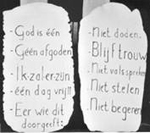 - God is één
- Géén afgoden
- Ik zal er zijn
- één dag vrij!!
- Eer wie dit
doorgeeft:
- Niet doden.
- Blijf trouw
- Niet vals spreken
- Niet stelen
- Niet begeren